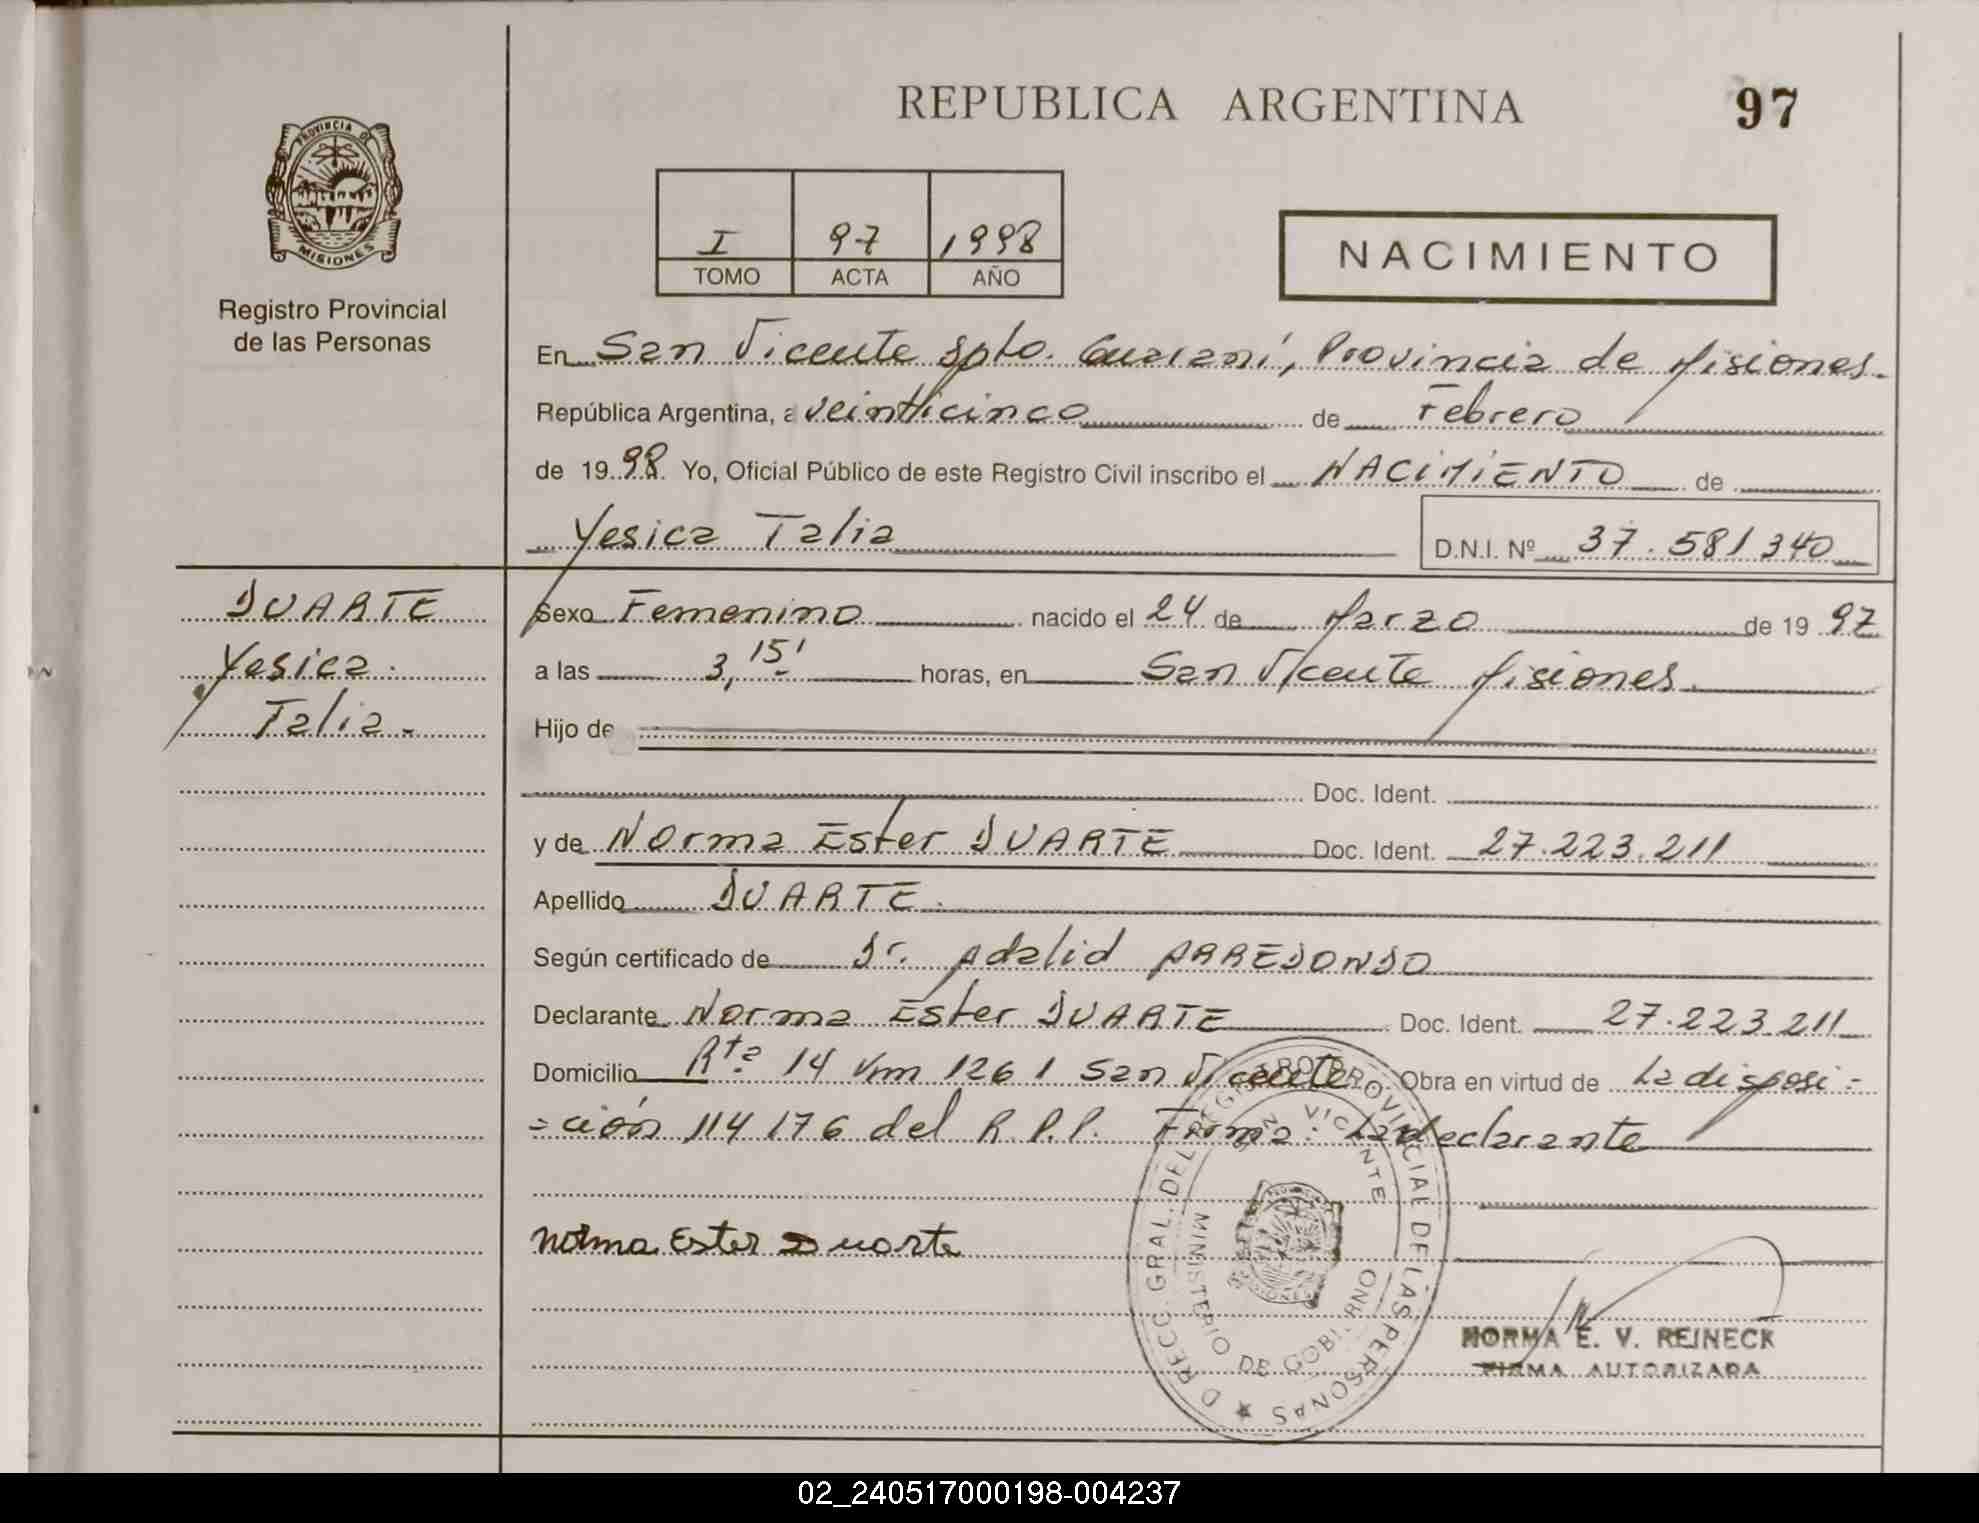 REPUBLICA ARGENTINA
97
PROVINCIA DE
MISIONES
Registro Provincial
de las Personas
I 97 1998
TOMO ACTA AÑO
NACIMIENTO
En San Vicente Dpto. Guaraní, Provincia de Misiones.
República Argentina, a veinticinco de Febrero
de 1998. Yo, Oficial Público de este Registro Civil inscribo el NACIMIENTO de
Yesica Talia D.N.I. Nº 37.581340
DUARTE
Yesica
Talia.
Sexo Femenino nacido el 24 de Marzo de 1997
a las 3,15' horas, en San Vicente Misiones
Hijo de
Doc. Ident.
y de Norma Ester DUARTE Doc. Ident. 27.223.211
Apellido DUARTE.
Según certificado de Dr. Adalid ARREDONDO
Declarante Norma Ester DUARTE Doc. Ident. 27.223.211
Domicilio Rta 14 Km 1261 San Vicente Obra en virtud de La disposi=
=ción 114176 del R.P.P. Firma: La declarante
Norma Ester Duarte
D RECC. GRAL. DEL REGISTRO PROVINCIAL DE LAS PERSONAS
SAN VICENTE
MINISTERIO DE GOBIERNO
NORMA E. V. REINECK
FIRMA AUTORIZADA
02_240517000198-004237